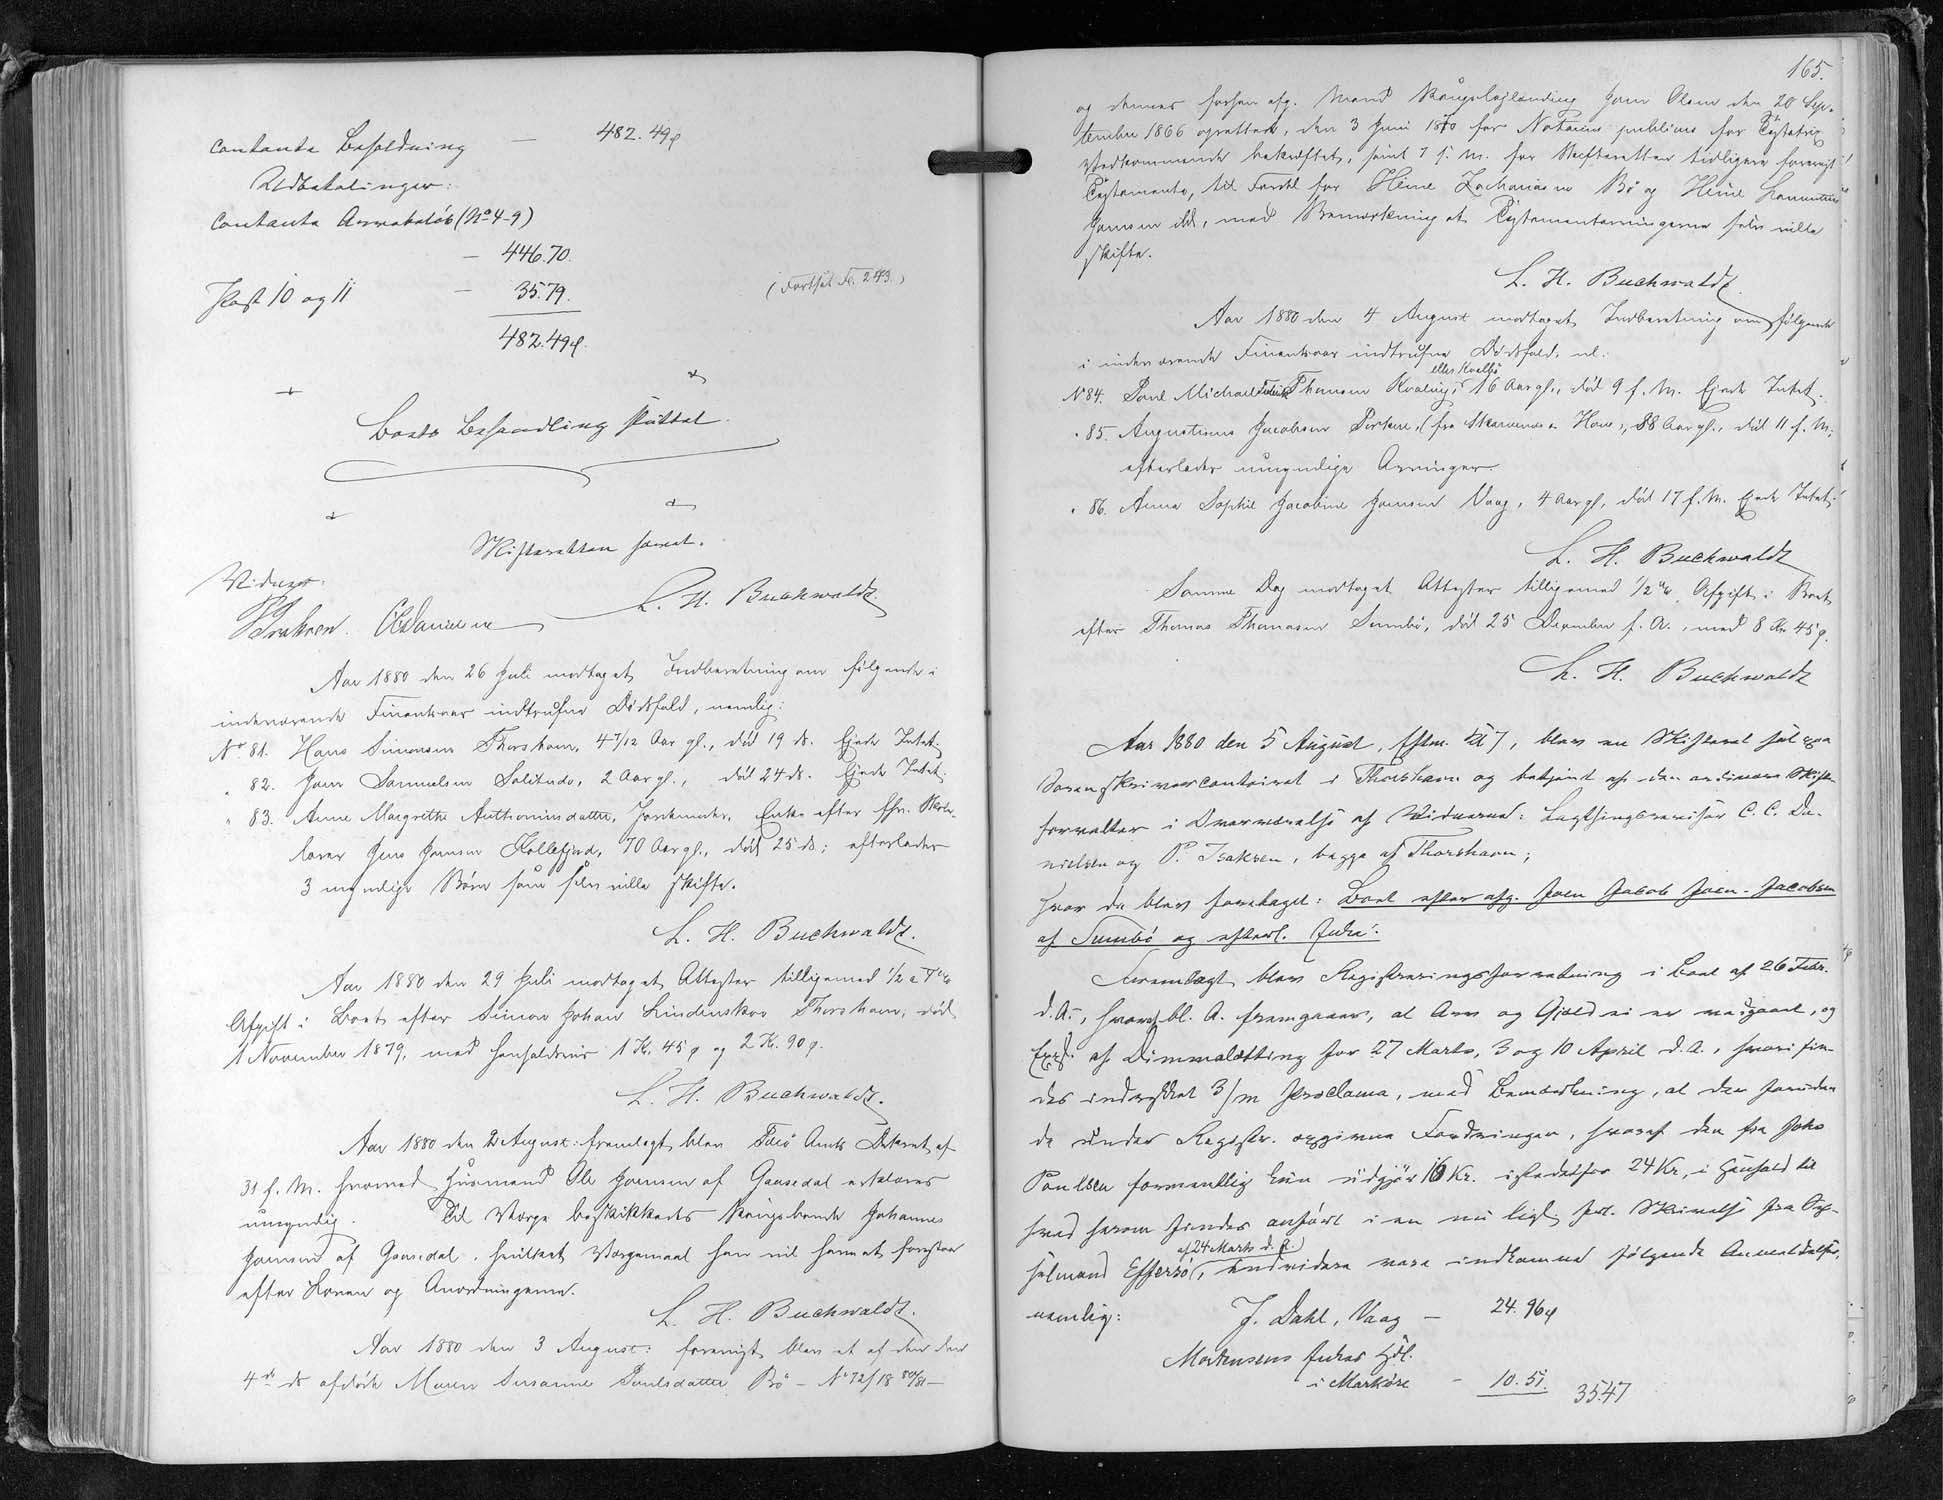 contante Beholdning — 482.49ø
Udbetalinger:
contante Arvebeløb (No 4-9)
— 446.70.
Post 10 og 11 — 35.79.
(Fortsat Fo. 243.)
482.49ø.
Boets Behandling sluttet.
Skifteretten hævet.
L. H. Buchwaldt.
Vidner:
P Isaksen. CCDanielsen
Aar 1880 den 26 Juli modtaget Indberetning om følgende i
indeværende Finantsaar indtrufne Dødsfald, nemlig:
No 81. Hans Simonsen Thorshavn, 4 7/12 Aar gl., død 19 ds. Ejede Intet.
" 82. Joen Samuelsen Solitude, 2 Aar gl., død 24 ds. Ejede Intet.
" 83. Anne Margrethe Anthoniusdatter, Jordemoder, Enke efter fhv. Skole-
lærer Jens Joensen Kollefjord, 70 Aar gl., død 25 ds; efterlader
3 myndige Børn som selv ville skifte.
L. H. Buchwaldt.
Aar 1880 den 29 Juli modtaget Attester tilligemed 1/2 a 1 %
Afgift i Boet efter Simon Johan Lindenskov Thorshavn, død
1 November 1879, med henholdsvis 1 Kr. 45 ø og 2 Kr. 90 ø.
L. H. Buchwaldt.
Aar 1880 den 2 August: fremlagt blev Færø Amts Dekret af
31 f. M. hvorved Huusmand Ole Joensen af Gaasedal erklæres
umyndig. Til Værge beskikkedes Kongsbonde Johannes
Joensen af Gaasedal, hvilket Værgemaal han vil have at forestaa
efter Loven og Anordningerne.
L. H. Buchwaldt.
Aar 1880 den 3 August: forevist blev et af den den
4de ds afdøde Maren Susanne Poulsdatter Bø – No 72/18 80/81 –
165.
og dennes forhen afg. Mand Kongslejlænding Joen Olsen den 20 Sep-
tember 1866 oprettet, den 3 Juni 1870 for Notarius publicus for Testatrix
Vedkommende bekræftet, samt 7 f. M. for Skifteretten tidligere forevist
Testamente, til Fordel for Heine Zachariasen Bø og Heine
Joensen ibd, med Bemærkning at Testamentarvingerne selv ville
skifte.
L. H. Buchwaldt.
Aar 1880 den 4 August modtaget Indberetning om følgende
i indeværende Finantsaar indtrufne Dødsfald, nl.
eller Kvalbø
No 84. Poul Michael Thomsen Kvalvig, 16 Aar gl., død 9 f. M. Ejede Intet.
" 85. Augustinus Jacobsen Porkere, (fra Skarvanes Hove), 58 Aar gl., død 11 f. M.;
efterlader umyndige Arvinger.
" 86. Anna Sophie Jacobine Joensen Vaag, 4 Aar gl., død 17 f. M. Ejede Intet.
L. H. Buchwaldt
Samme Dag modtaget Attester tilligemed 1/2 % Afgift i Boet
efter Thomas Thomasen Sumbø, død 25 December f. A., med 8 Kr. 45 ø.
L. H. Buchwaldt
Aar 1880 den 5 August, Eftm. Kl 7, blev en Skifteret sat paa
Sorenskrivercontoiret i Thorshavn og betjent af den ordinære Skifte-
forvalter i Overværelse af Vidnerne: Lagthingsrevisor C. C. Da-
nielsen og P. Isaksen, begge af Thorshavn;
hvor da blev foretaget: Boet efter afg. Joen Jacob Joen-Jacobsen
af Sumbø og efterl. Enke.
Fremlagt blev Registreringsforretning i Boet af 26 Febr.
d. A., hvoraf bl. A. fremgaaer, at Arv og Gjæld ei er vedgaaet, og
Expl. af Dimmalætting for 27 Marts, 3 og 10 April d. A., hvori fin-
des indrykket 3/m Proclama, med Bemærkning, at der foruden
de under Registr. opgivne Fordringer, hvoraf den fra Johs
Poulsen formentlig kun udgjør 16 Kr. istedetfor 24 Kr., i Henhold til
hvad herom findes anført i en nu ligl. frl. Skrivelse fra Op-
af 24 Marts d. A.
sidmand Effersø, endvidere vare indkomne følgende Anmeldelser,
nemlig: J. Dahl, Vaag — 24. 96ø
Mortensens Enkes Hdl.
i Markøre — 10. 51. 35.47